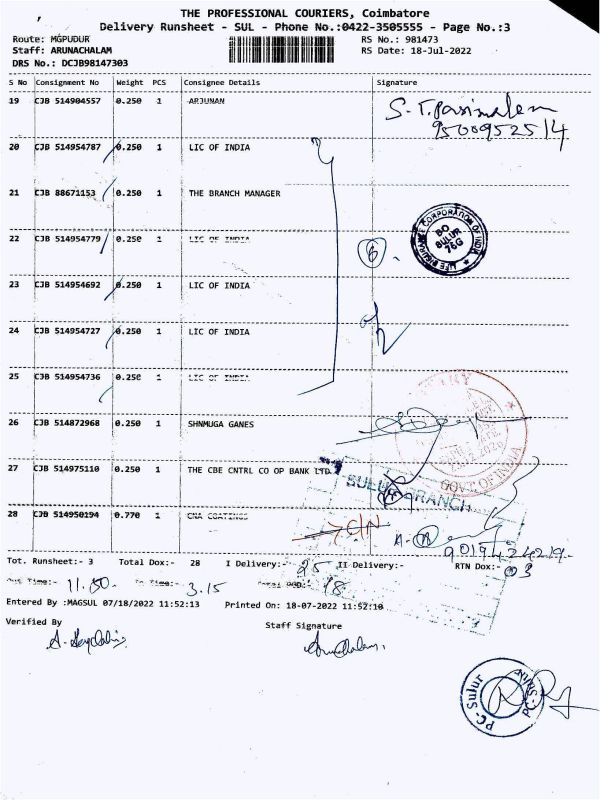 THE PROFESSIONAL COURIERS, Coimbatore
Delivery Runsheet - SUL - Phone No.:0422-3505555 - Page No.:3
Route: MGPUDUR RS No.: 981473
Staff: ARUNACHALAM RS Date: 18-Jul-2022
DRS No.: DCJB98147303
S No Consignment No Weight PCS Consignee Details Signature
19 CJB 514904557 0.250 1 ARJUNAN
9500952514
20 CJB 514954787 0.250 1 LIC OF INDIA
21 CJB 88671153 0.250 1 THE BRANCH MANAGER
LIFE INSURANCE CORPORATION OF INDIA
BO
SULUR
76G
22 CJB 514954779 0.250 1 LIC OF INDIA
6
23 CJB 514954692 0.250 1 LIC OF INDIA
24 CJB 514954727 0.250 1 LIC OF INDIA
25 CJB 514954736 0.250 1 LIC OF INDIA
26 CJB 514872968 0.250 1 SHNMUGA GANES
GOVT OF INDIA
27 CJB 514975110 0.250 1 THE CBE CNTRL CO OP BANK LTD
SULUR BRANCH
28 CJB 514950194 0.770 1 CNA COATINGS
Tot. Runsheet:- 3 Total Dox:- 28 I Delivery:- 25 II Delivery:- RTN Dox:- 03
Out Time:- 11.50 In Time:- 3.15 Total POD:- 18
Entered By :MAGSUL 07/18/2022 11:52:13 Printed On: 18-07-2022 11:52:10
Verified By Staff Signature
Arunachalam
PC- Sulur